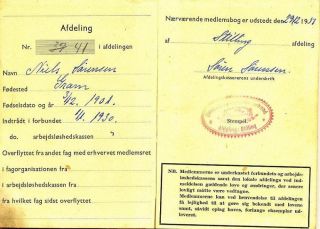 Afdeling
Nr. 39.41 i afdelingen
Navn Niels Sørensen
Fødested Gram
Fødselsdato og år 3/2. 1908.
Indtrådt i forbundet 1/1. 1930.
do. arbejdsløshedskassen
Overflyttet fra andet fag med erhvervet medlemsret
i fagorganisationen
do. i arbejdsløshedskassen
fra
fra hvilket fag sidst overflyttet
Nærværende medlemsbog er udstedt den 29/12 1951
Afdelingskassererens underskrift
Stempel.
NB. Medlemmerne er underkastet forbundets og arbejds-
løshedskassens samt den lokale afdelings ved ind-
meldelsen gældende love og ændringer, der senere
lovligt måtte være vedtagne.
Medlemmerne kan ved henvendelse til afdelingen
få lejlighed til at gøre sig bekendt med lovene
samt, såvidt oplag haves, forlange eksemplar ud-
leveret.